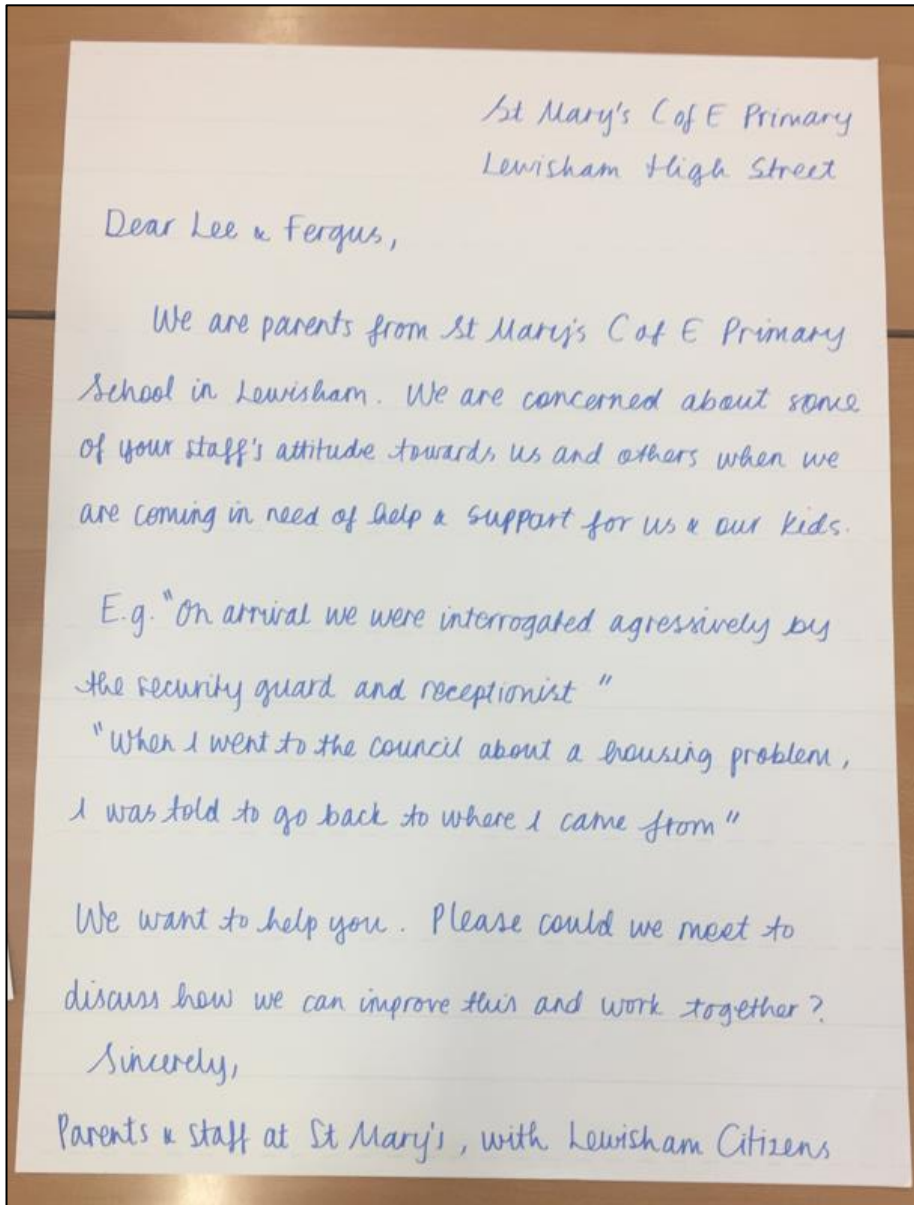 St Mary's C of E Primary
Lewisham High Street
Dear Lee & Fergus,
We are parents from St Mary's C of E Primary
School in Lewisham. We are concerned about some
of your staff's attitude towards us and others when we
are coming in need of help & support for us & our kids.
E.g. "On arrival we were interrogated agressively by
the security guard and receptionist"
"When I went to the council about a housing problem,
I was told to go back to where I came from"
We want to help you. Please could we meet to
discuss how we can improve this and work together?
Sincerely,
Parents & staff at St Mary's, with Lewisham Citizens